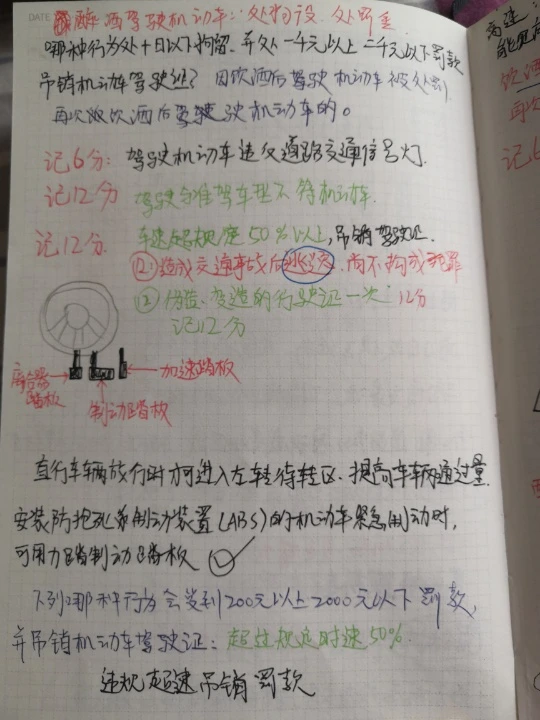 DATE
醉酒驾驶机动车：处拘役、处罚金
哪种行为处十日以下拘留、并处一千元以上二千元以下罚款
吊销机动车驾驶证？因饮酒后驾驶机动车被处罚
再次饮酒后驾驶机动车的。
记6分：驾驶机动车违反道路交通信号灯.
记12分 驾驶与准驾车型不符机动车.
记12分. 车速超规定50%以上,吊销驾驶证.
⑫造成交通事故后逃逸.尚不构成犯罪
⑫伪造、变造的行驶证一次 12分
记12分
离合器踏板
制动踏板
加速踏板
直行车辆放行时方可进入左转待转区、提高车辆通过量.
安装防抱死制动装置(ABS)的机动车紧急制动时,
可用力踏制动踏板 ✓
下列哪种行为会受到200元以上2000元以下罚款,
并吊销机动车驾驶证：超过规定时速50%.
违规超速 吊销 罚款
高速：
饮酒
再次
记6